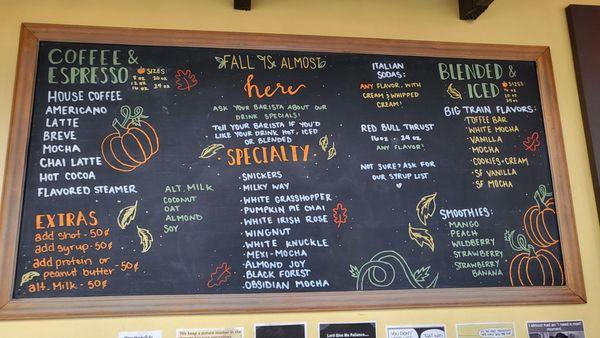 COFFEE &
ESPRESSO
SIZES:
8 oz 20 oz
12 oz
16 oz 24 oz
HOUSE COFFEE
AMERICANO
LATTE
BREVE
MOCHA
CHAI LATTE
HOT COCOA
FLAVORED STEAMER
EXTRAS
add shot - 50¢
add syrup - 50¢
add protein or
peanut butter - 50¢
alt. Milk - 50¢
ALT. MILK
COCONUT
OAT
ALMOND
SOY
FALL IS ALMOST
here
ASK YOUR BARISTA ABOUT OUR
DRINK SPECIALS!
TELL YOUR BARISTA IF YOU'D
LIKE YOUR DRINK HOT, ICED
OR BLENDED
SPECIALTY
SNICKERS
MILKY WAY
WHITE GRASSHOPPER
PUMPKIN PIE CHAI
WHITE IRISH ROSE
WINGNUT
WHITE KNUCKLE
MEXI-MOCHA
ALMOND JOY
BLACK FOREST
OBSIDIAN MOCHA
ITALIAN
SODAS:
ANY FLAVOR, WITH
CREAM & WHIPPED
CREAM!
RED BULL THRUST
16 oz - 24 oz
ANY FLAVOR!
NOT SURE? ASK FOR
OUR SYRUP LIST
BLENDED
& ICED
SIZES:
16 oz
24 oz
BIG TRAIN FLAVORS:
TOFFEE BAR
WHITE MOCHA
VANILLA
MOCHA
COOKIES+CREAM
SF VANILLA
SF MOCHA
SMOOTHIES:
MANGO
PEACH
WILDBERRY
STRAWBERRY
STRAWBERRY
BANANA
Lord Give Me Patience...
YOU DON'T